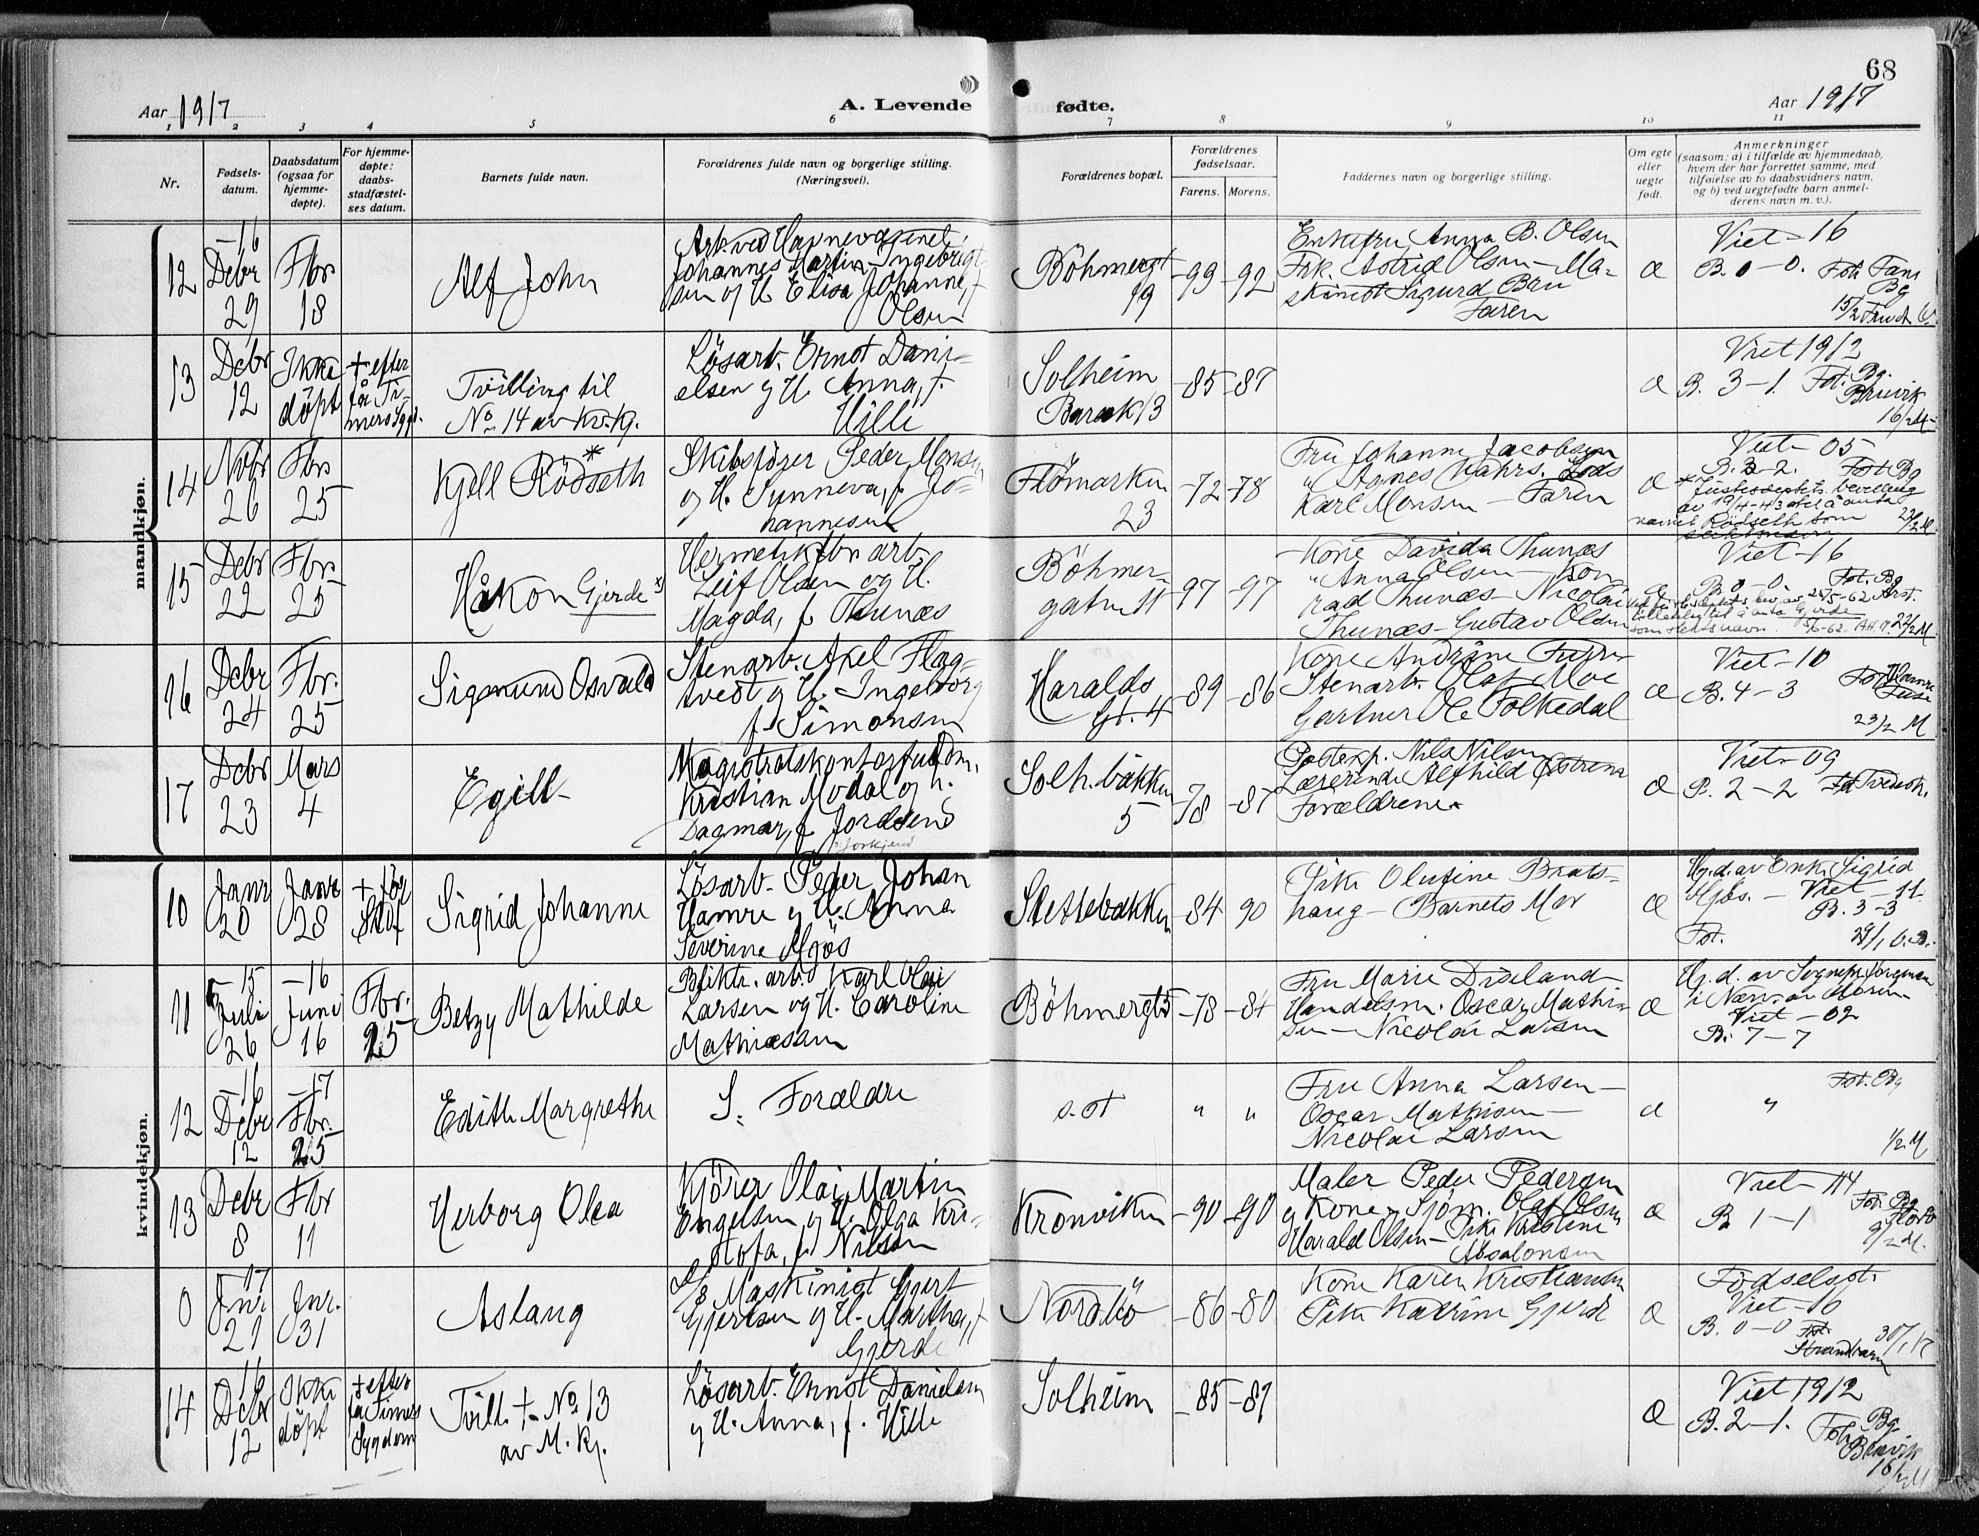 68
Aar 1917
A. Levende fødte.
Aar 1917
1 2 3 4 5 6 7 8 9 10 11
Nr.
Fødsels-
datum.
Daabsdatum
(ogsaa for
hjemme-
døpte).
For hjemme-
døpte:
daabs-
stadfæstel-
ses datum.
Barnets fulde navn.
Forældrenes fulde navn og borgerlige stilling.
(Næringsvei).
Forældrenes bopæl.
Forældrenes
fødselsaar.
Farens. Morens.
Faddernes navn og borgerlige stilling.
Om egte
eller
uegte
født.
Anmerkninger
(saasom: a) i tilfælde av hjemmedaab,
hvem der har forrettet samme, med
tilføielse av to daabsvidners navn,
og b) ved uegtefødte barn anmel-
derens navn m. v.).
mandkjøn.
12
-16
Debr
29
Fbr
18
Alf John
Arb. ved Havnevæsenet
Johannes Martin Ingebrigt
sen og H. Elisa Johanne, f.
Olsen
Böhmergt
19
-99 -92
Enkefru Anna B. Olsen
Frk. Astrid Olsen - Ma-
skinist Sigurd Bru
Faren
æ
Viet -16
B. 0-0.
13
Debr
12
Ikke
döpt
+ efter
få Ti-
mers Sygd.
Tvilling til
No 14 av Kv. Kj.
Lösarb. Ernst Dani-
elsen og H. Anna, f.
Hille
Solheim
Barak 13
-85 -87
æ
Viet 1912
B. 3-1. Fot. Bg.
Bruvik
14
Nvbr
26
Fbr
25
Kjell Rödseth *
Skibsförer Peder Monsen
og H. Synneva, f. Jo-
hannesen
Flömarken
23
-72 -78
Fru Johanne Jacobsen
" Agnes Vahrs. Lods
Karl Monsen - Faren
æ
Viet -05
B. 2-2. Fot. Bg
av 19/4-43 til å anta
navnet Rödseth som
15
Debr
22
Fbr.
25
Håkon Gjerde *)
Hermetikfbr. arb.
Leif Olsen og H.
Magda, f. Thunæs
Böhmer-
gaten 11
-97 -97
Kone Davida Thunæs
" Anna Olsen - Kon
rad Thunæs - Nicolai
Thunæs - Gustav Olsen
æ
Viet -16
B. 0-0. Fot. Bg
som slektsnavn
16
Debr
24
Fbr.
25
Sigmund Osvald
Stenarb. Axel Flag-
tvedt og H. Ingeborg
f. Simonsen
Haralds
Gt. 4
-89 -86
Kone Andrine
Stenarb. Olaf Moe
Gartner Ole Folkedal
æ
Viet -10
B. 4-3
23/2 M
17
Debr
23
Mars
4
Egill
Magistratskontorfuldm.
Kristian Modal og H.
Dagmar, f. Jordsens
Solh. bakken
5
-78 -87
Postexp. Nils Nilsen
Lærerinde Alfhild
Forældrene
æ
Viet -09
B. 2-2
kvindekjøn.
10
Janr
20
Janr
28
+ för
Stdf
Sigrid Johanne
Lösarb. Peder Johan
Hamre og H. Anna
Severine Mjös
Slettebakken
-84 90
Pike Olufine Brats-
haug - Barnets Mor
æ
Hj. d. av Enke Sigrid
Mjös. - Viet -11
B. 3-3
Fot.
11
-15
Juli
26
-16
Juni
16
Fbr.
25
Betzy Mathilde
Bliktr. arb. Karl Olai
Larsen og H. Caroline
Mathiesen
Böhmergt 5
-78 -84
Fru Marie Diseland
Handelsm. Oscar Mathi-
sen - Nicolai Larsen
æ
Hj. d. av Sognepr. Jorgman
Viet -02
B. 7-7
12
-16
Debr
12
-17
Fbr.
25
Edith Margrethe
S. Forældre
s. st
" "
Fru Anna Larsen -
Oscar Mathisen -
Nicolai Larsen
æ
"
Fot. Bg
1/2 M
13
Debr
8
Fbr
11
Herborg Olea
Kjörer Olai Martin
Engelsen og H. Olga Kri-
stofa, f. Nilsen
Kronviken
-90 -90
Maler Peder Pedersen
og Kone - Sjöm. Olaf Olsen
Harald Olsen - Pike Kristine
Absalonsen
æ
Viet -14
B. 1-1
9/2 M.
0
17
Jnr
21
Jnr.
31
Aslaug
D/S Maskinist Gjert
Gjertsen og H. Martha, f.
Gjerde
Nordbö
-86 -80
Kone Karen Kristiansen
Pike Katrine Gjerde
æ
Födselsst.
Viet -16
B. 0-0 Fot.
Strandebarm
30/1 17
14
16
Debr
12
Ikke
döpt
+ efter
få Timers
Sygdom
Tvill. t. No 13
av M. Kj.
Lösarb. Ernst Danielsen
og H. Anna, f. Hille
Solheim
-85 -87
æ
Viet 1912
B. 2-1.
Fot. Bg
Bruvik
16/2 M